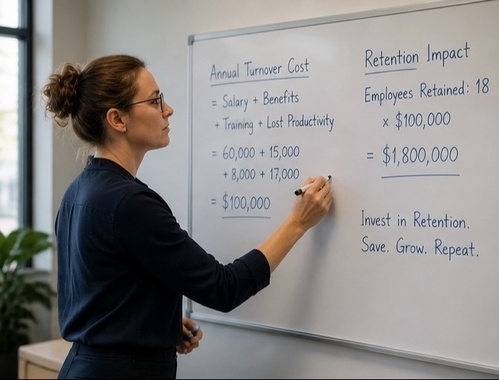 Annual Turnover Cost
= Salary + Benefits
+ Training + Lost Productivity
= 60,000 + 15,000
+ 8,000 + 17,000
= $100,000
Retention Impact
Employees Retained: 18
x $100,000
= $1,800,000
Invest in Retention.
Save. Grow. Repeat.